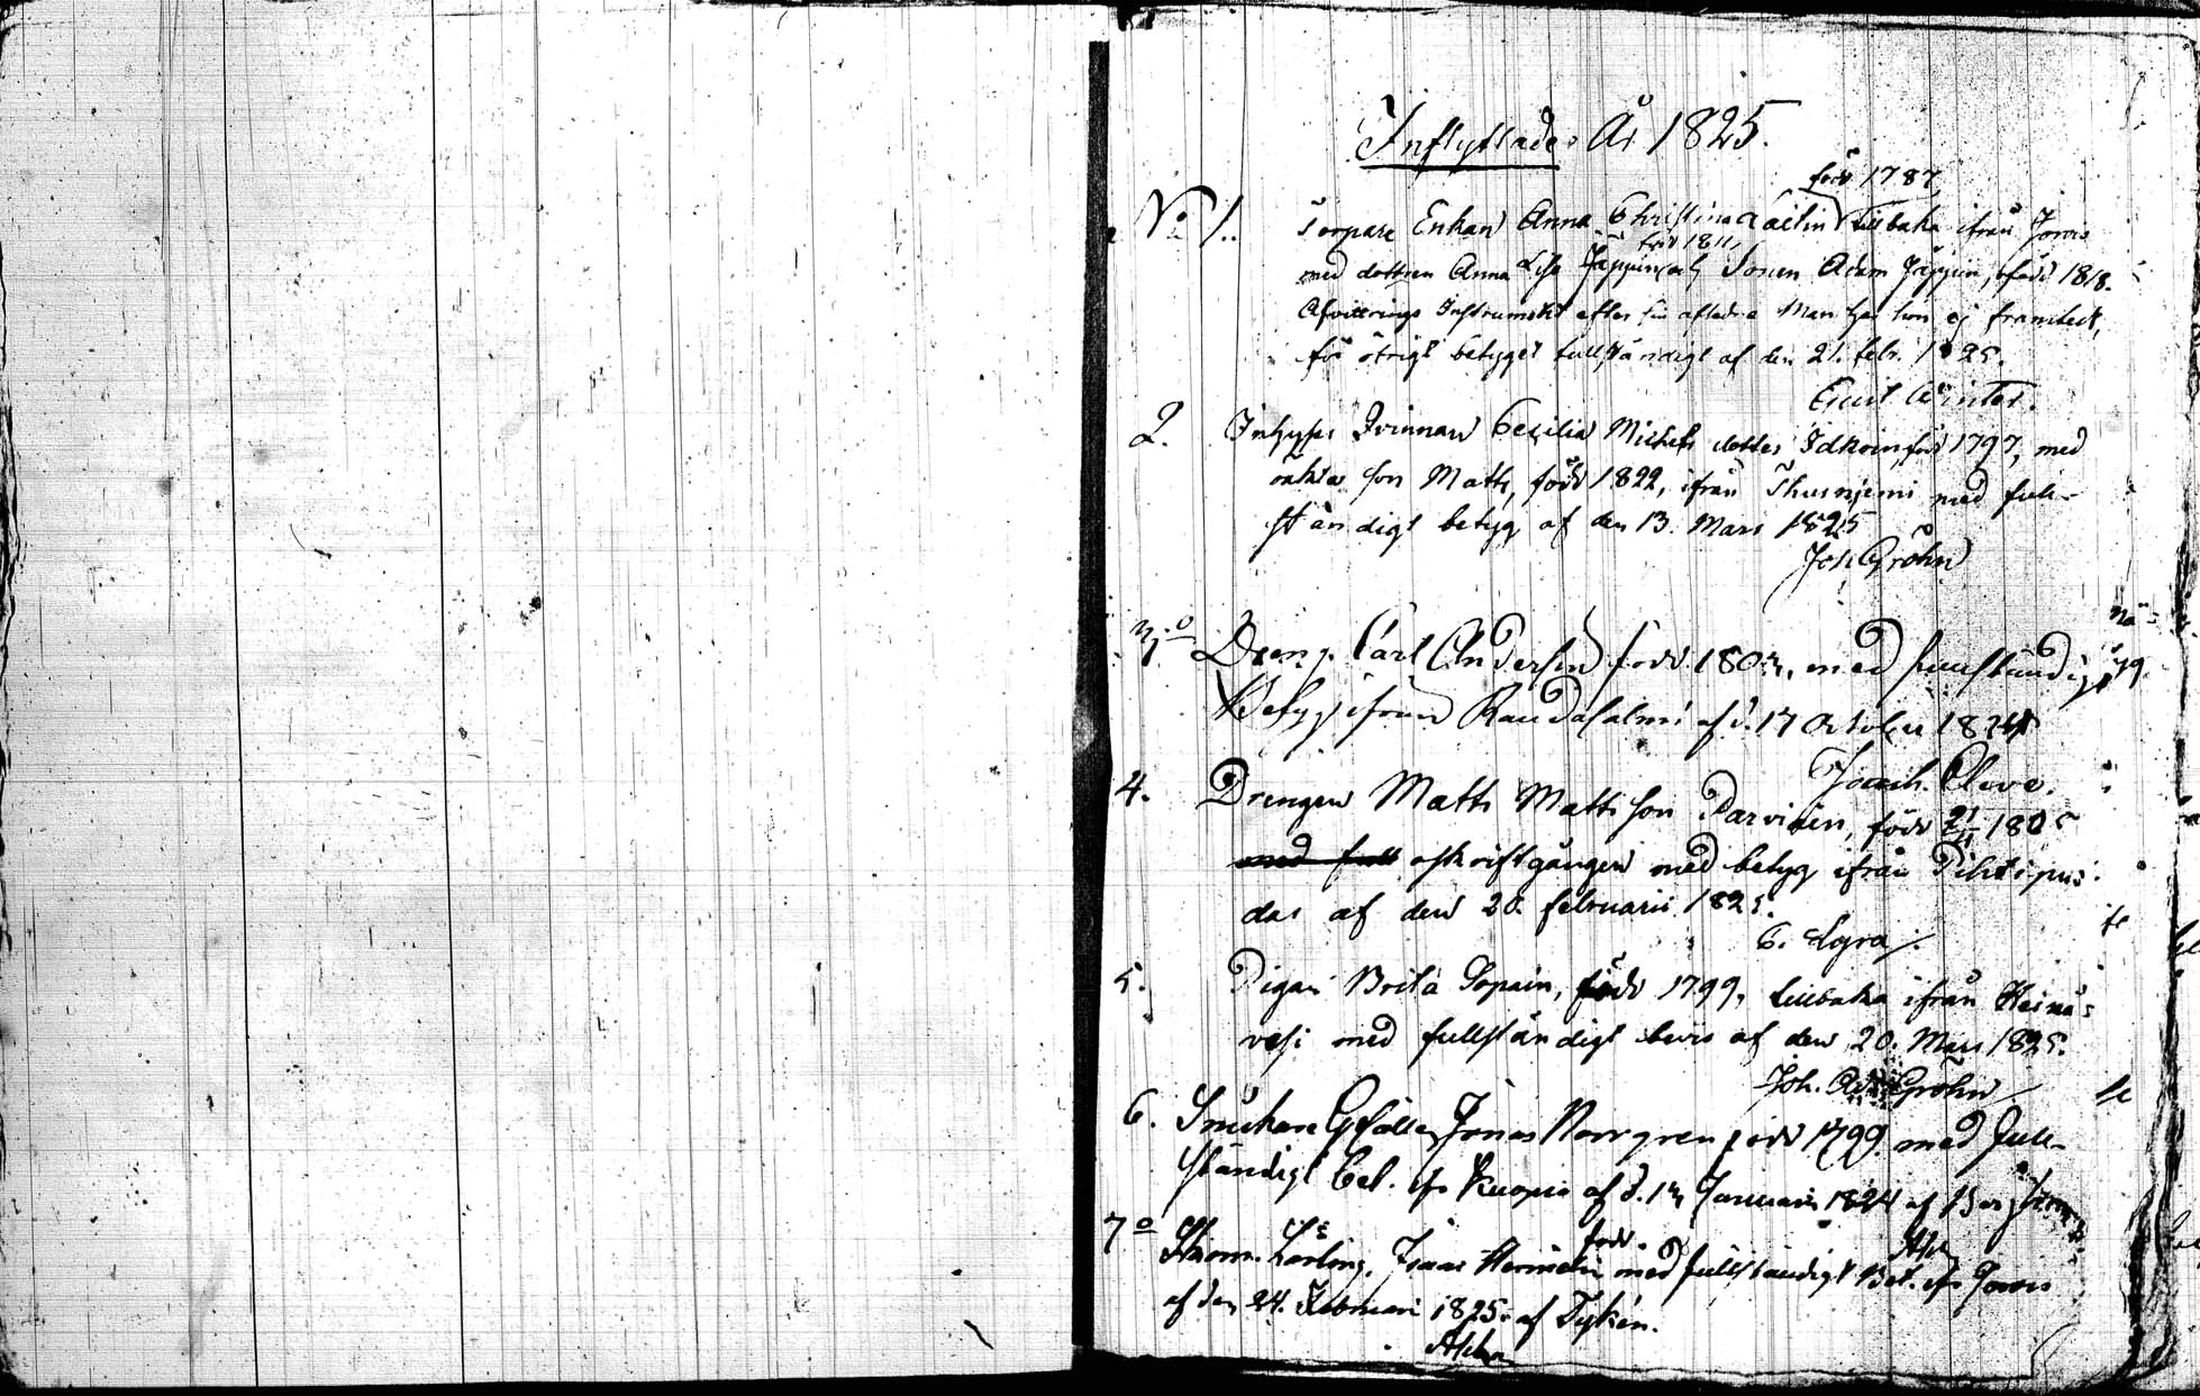 Inflyttade År 1825.
född 1787,
No 1. Torpare Enkan Anna Christina Laitin tillbaka ifrån Jorois
född 1811,
med dottren Anna Lisa Jäppin och Sonen Adam Jäppin, född 1818.
Afvittrings Instrument efter sin aflidne Man har hon ej framtedt,
för öfrigt betyget fullständigt af den 21. febr. 1825.
Winter.
2. Inhyses Qvinnan Cecilia Michels dotter Idkoin, född 1797, med
oäkta son Matts, född 1822, ifrån Thusnjemi med full-
ständigt betyg af den 13. Mars 1825
Joh Gröhn
3o Dreng. Carl Andersin född 1803, med fullständigt
Betyg ifrån Randasalmi af d. 17 October 1824
Joach. Cleve.
4. Drengen Matts Mattsson Parviain, född 1805
med full oskriftgången med betyg ifrån Pihtipu-
das af den 20. februarii 1825.
C. Elgra
5. Pigan Brita Sopain, född 1799, tillbaka ifrån Heinä-
vesi med fullständigt bevis af den 20. Mars 1825.
Joh. Gröhn
6. Snickare Gesällen Jonas Norrgren född 1799 med full-
ständigt Bet. ifr Kuopio af d. 13 Januarii 1824 af
7o Lärling. Isaac med fullständigt Bet. ifr Jorois
född.
af den 24. Februari 1825. af Tykén.